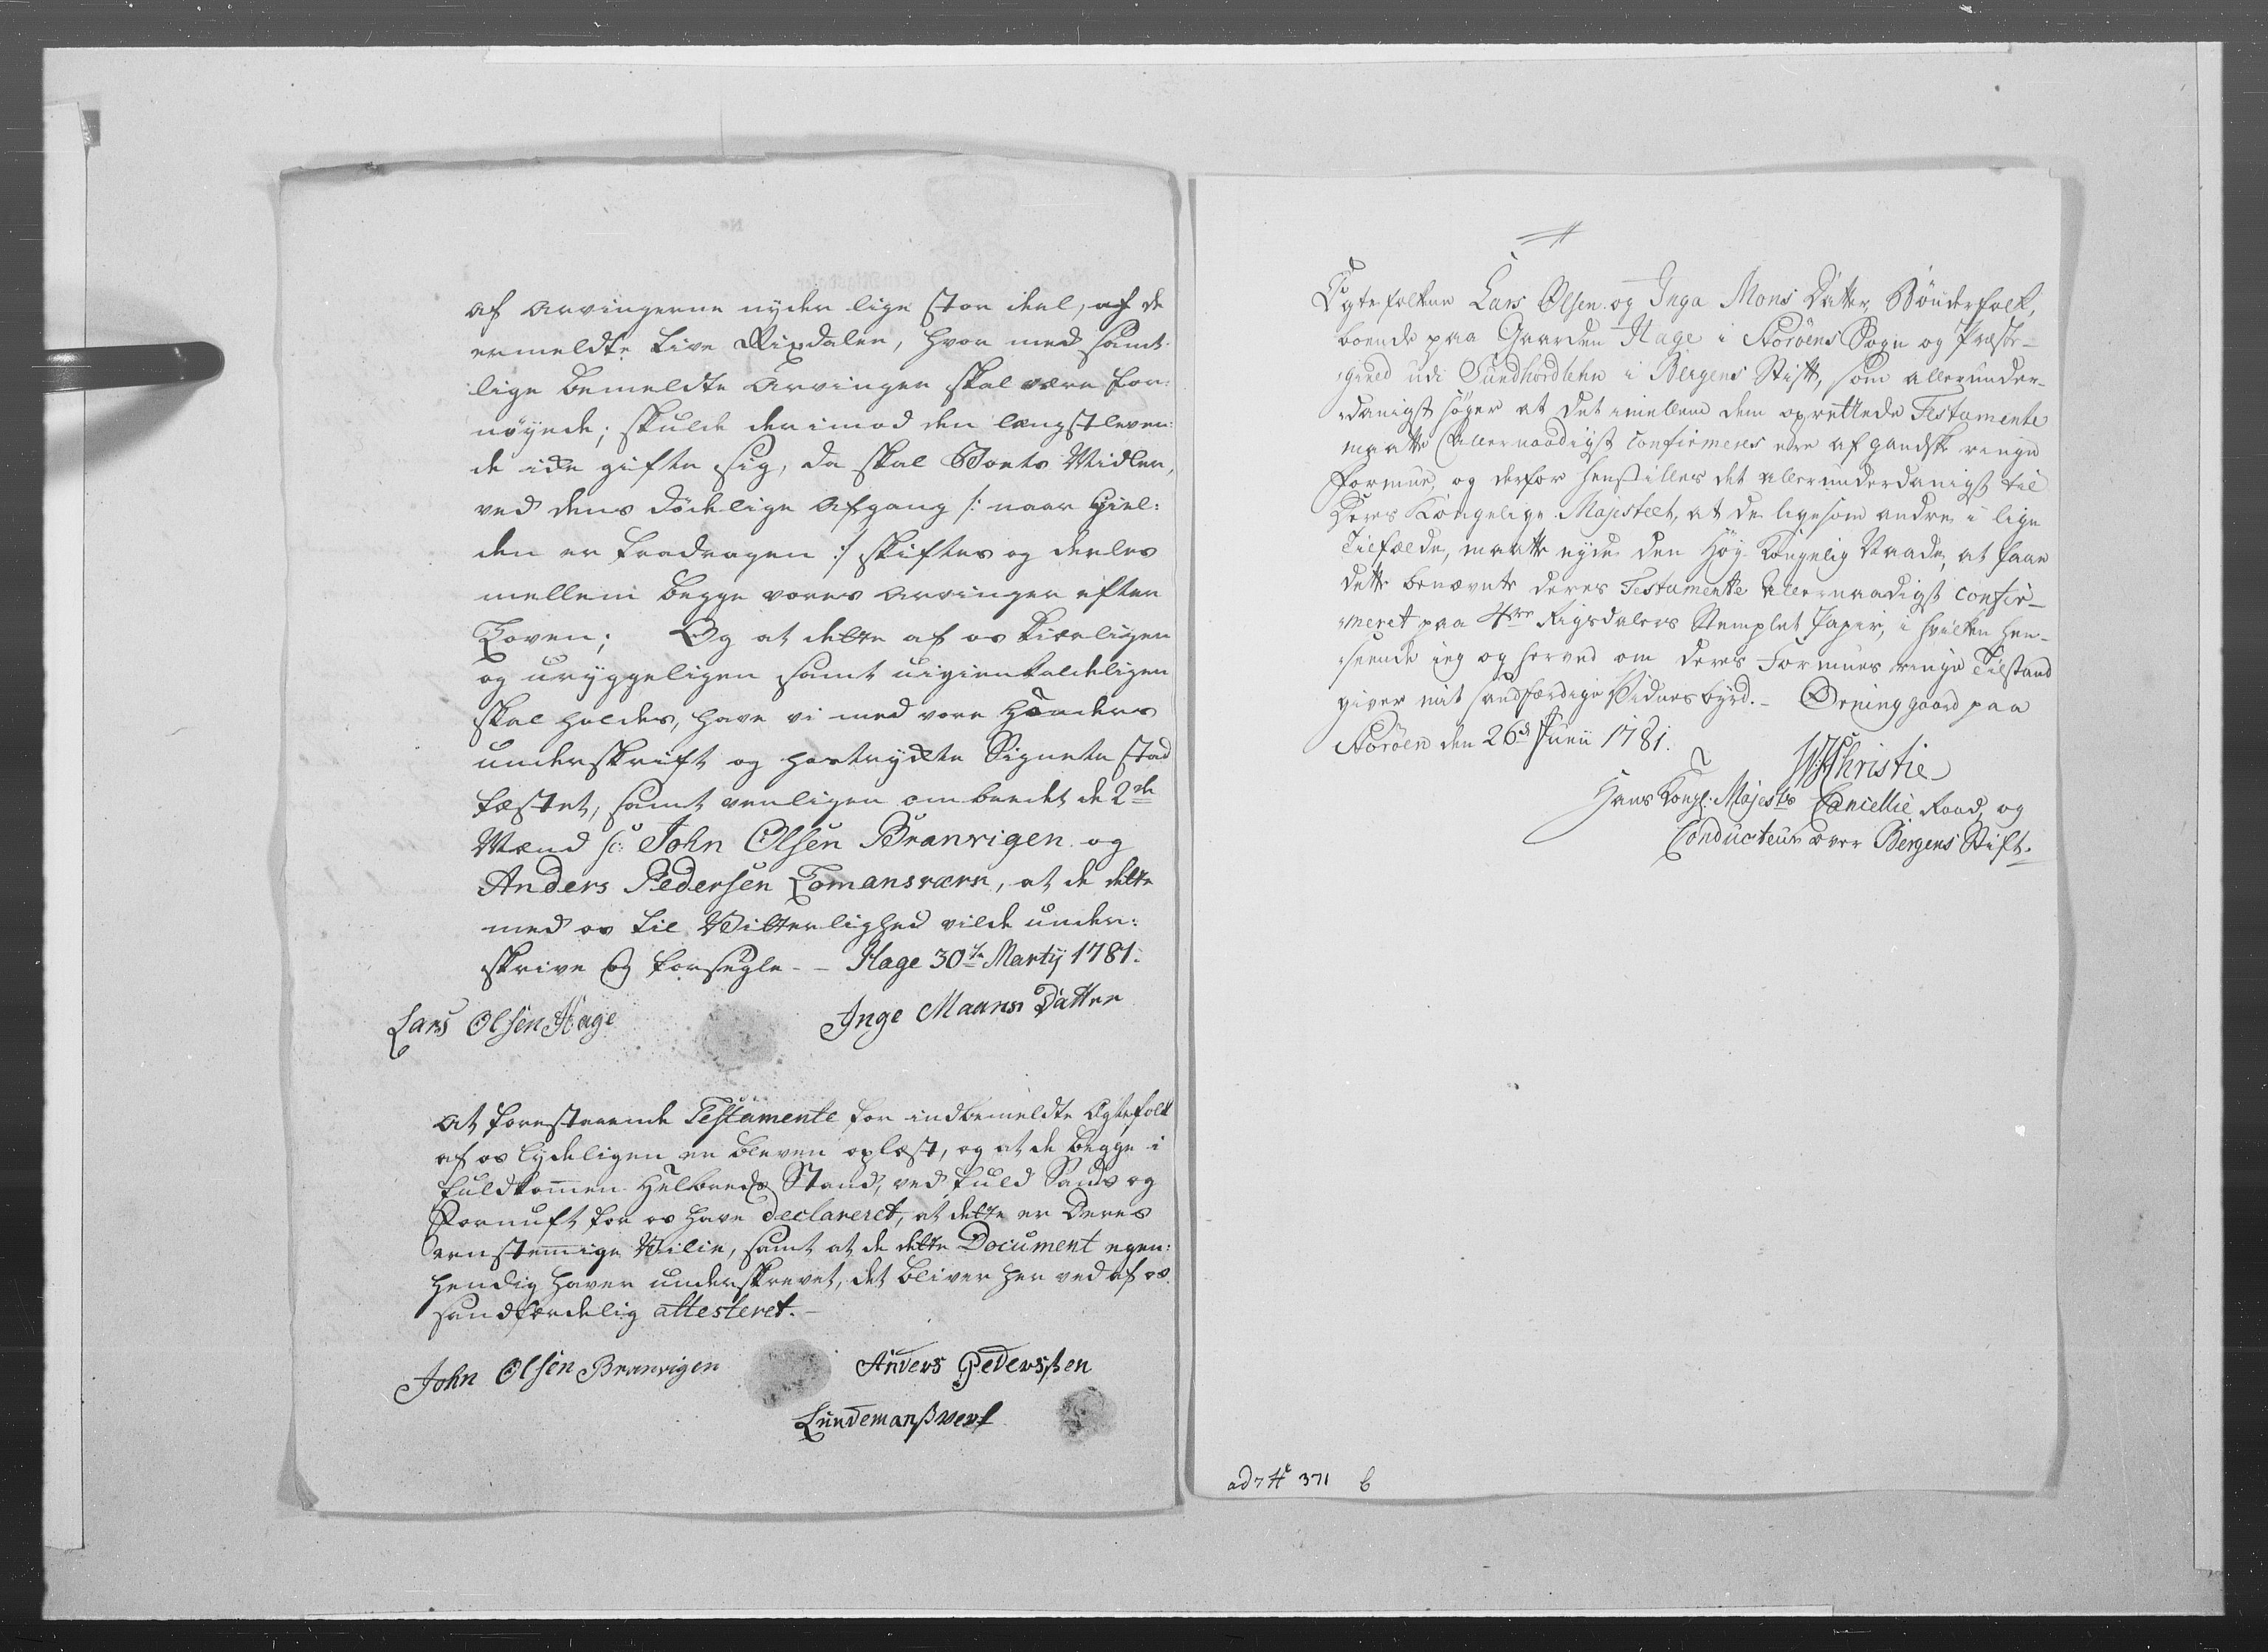 af arvingerne nyder lige stor deel, af de
ermeldte Tive Rixdaler, hvor med samt-
lige bemeldte Arvinger skal være for:
nøyede; skulde derimod den længstleven:
de icke gifte sig, da skal Boets Midler,
ved dens dödelige Afgang /: naar Giel:
den er fradragen :/ skiftes og deeles
mellem begge vores arvinger efter
Loven; Og at dette af os kierligen
og uryggeligen samt uigienkaldeligen
skal holdes, have vi med vore Hænders
underskrift og hostrygte Signeter stad
fæstet, samt venligen ombeedet de 2de
Mænd sc: John Olsen Branvigen og
Anders Pedersen Lomansværn, at de dette
med os til Vitterlighed vilde under:
skrive og forsegle. - Hage 30te Martij 1781.
Lars Olsen Hage
Inge Maans Datter
At forestaaende Testamente for indbemeldte Ægtefolk
af os lydeligen er bleven oplæst, og at de begge i
fuldkommen Helbreds Stand, ved fuld Sands og
Fornuft for os have declareret, at dette er Deres
eenstemmige Villie, samt at de dette Document egen:
hendig haver underskrevet, det bliver her ved af os
sandfærdelig attesteret.-
John Olsen Branvigen
Anders Pederssen
Lundemanssverf
Ægtefolkene Lars Olsen og Inga Mons Datter, Bönderfolk,
boende paa Gaarden Hage i Storöens Sogn og Præste-
gield udi Sundhordlehn i Bergens Stift, som allerunder-
danigst söger at det imellem dem oprettede Testamente
maatte Allernaadigst confirmeres ere af gandske ringe
Formue, og derfor henstilles det allerunderdanigst til
Deres Kongelige Majesteet, at de ligesom andre i lige
Tilfælde, maatte nyde den Höy Kongelig Naade, at faae
dette benævnte deres Testamente Allernaadigst confir-
meret paa 4re Rigsdalers Stemplet Papir, i hvilken hen-
seende jeg og herved om deres Formues ringe Tilstand
giver mit sandfærdige Vidnesbyrd. - Örninggaard paa
Storöen den 26de Junii 1781.
Christie
Hans Kongl. Majests Cancellie Raad, og
Conducteur over Bergens Stift.
ad 7 H 371 b